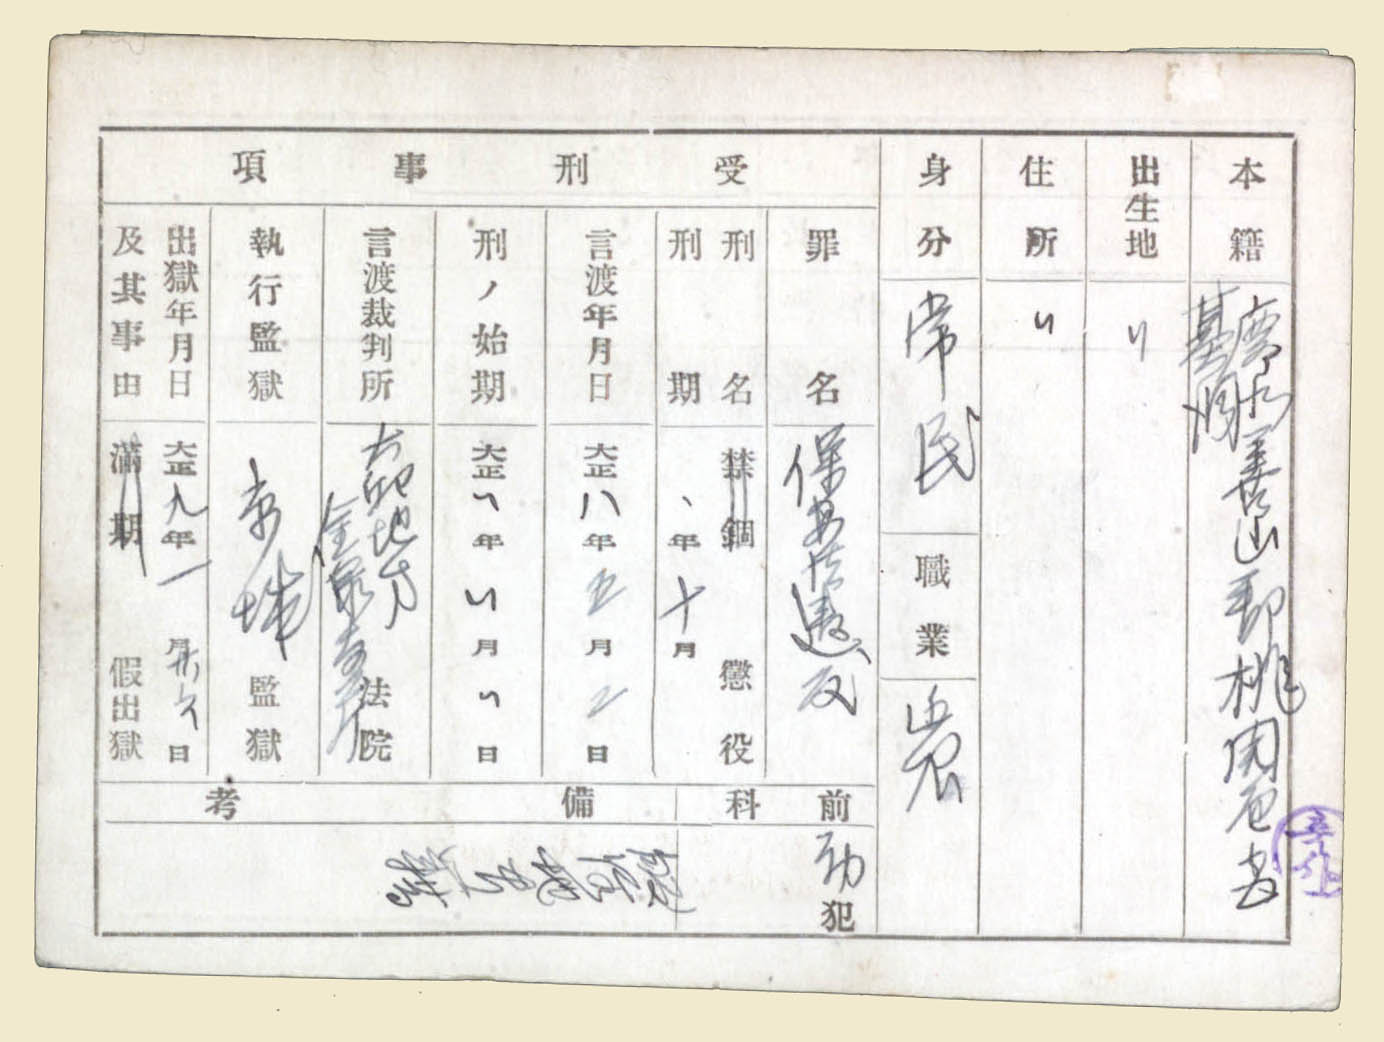 本籍
慶北善山郡桃開面
出生地
〃
住所
〃
身分
常民
職業
農
受刑事項
罪名
保安法違反
刑名
禁錮 懲役
刑期
、年十月
言渡年月日
大正八年五月二日
刑ノ始期
大正〃年〃月〃日
言渡裁判所
大邱地方
金泉支庁
法院
執行監獄
京城監獄
出獄年月日
及其事由
大正九年一月廿六日
滿期 假出獄
前科
初犯
備考